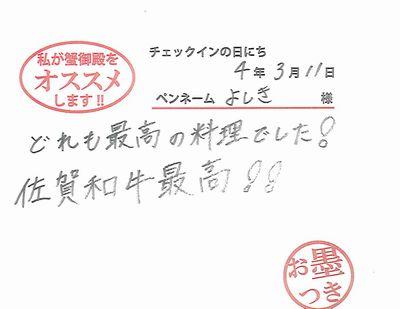 私が蟹御殿を
オススメ
します!!
チェックインの日にち
4年3月11日
ペンネーム よしき 様
どれも最高の料理でした!
佐賀和牛最高!!
お墨
つき